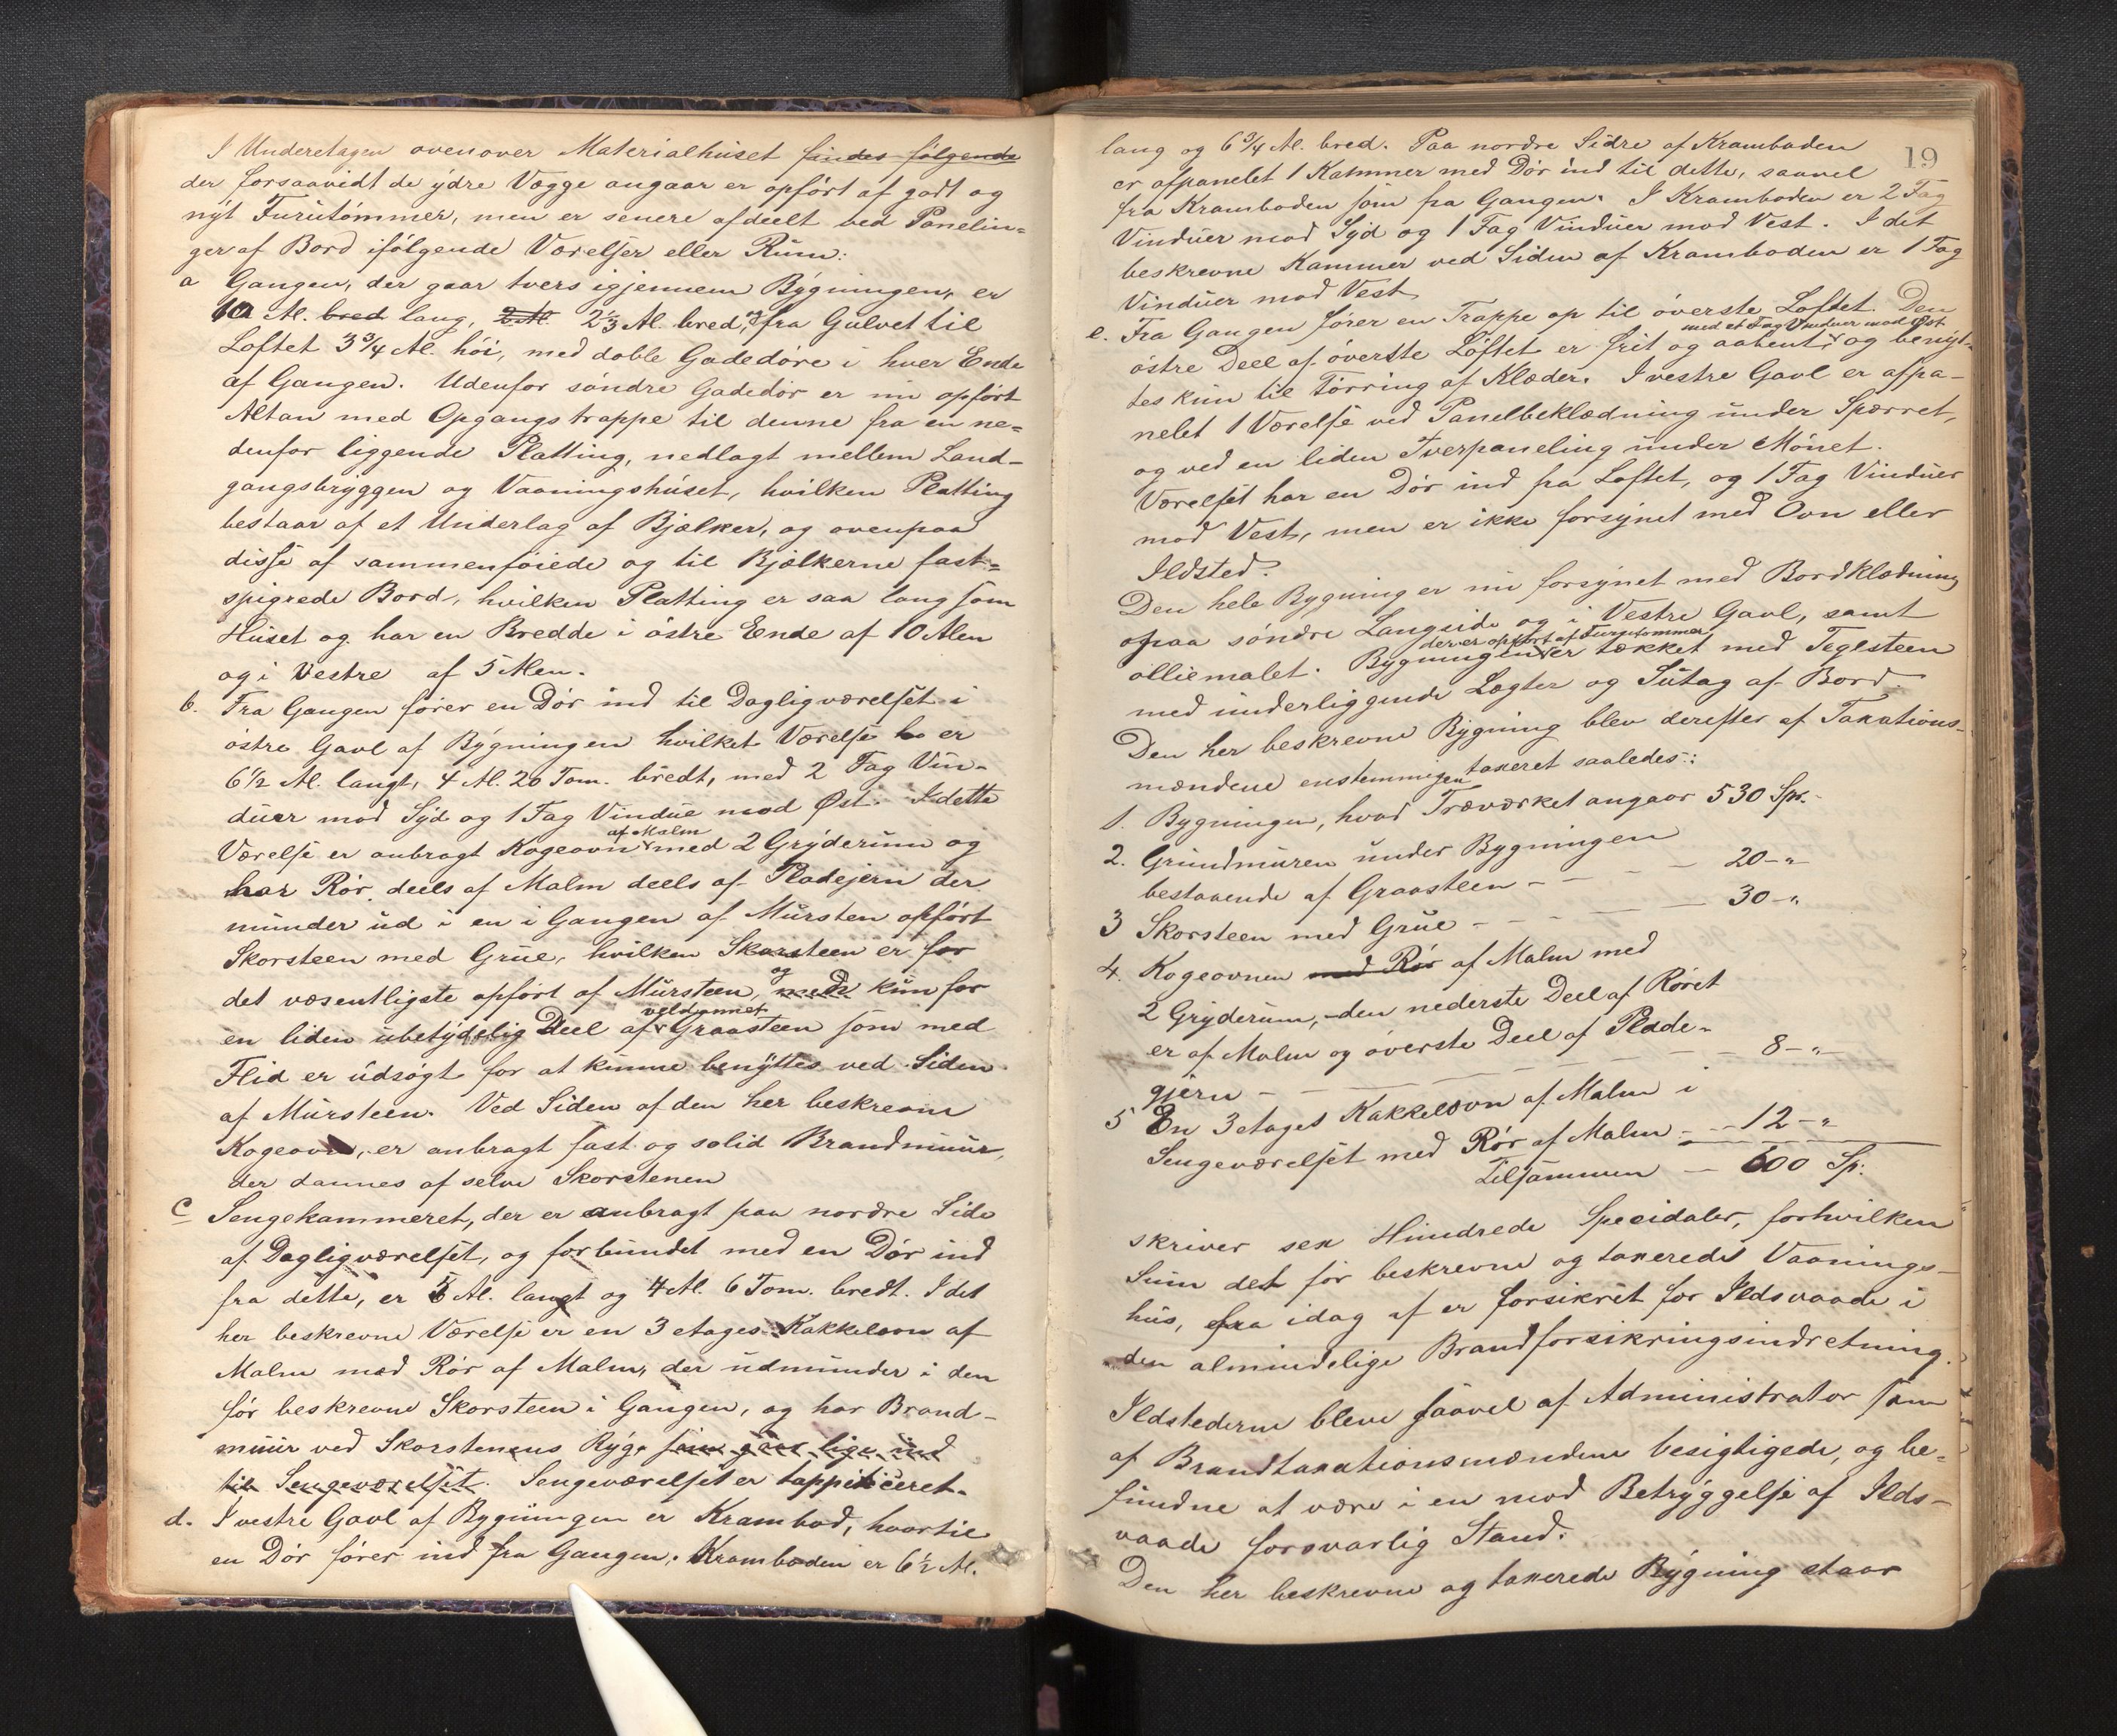 I Underetagen ovenover Materialhuset findes følgende
der forsaavidt de ydre Vægge angaar er opført af godt og
nyt Furutømmer, men er senere afdeelt ved Panelin=
ger af Bord ifølgende Værelser eller Rum:
a Gangen, der gaar tvers igjennem Bygningen, er
10 Al. bred lang, 2 Al 2⅓ Al. bred, og fra Gulvet til
Loftet 3¾ Al. høi, med doble Gadedøre i hver Ende
af Gangen. Udenfor søndre Gadedør er nu opført
Altan med Opgangstrappe til denne fra en ne=
denfor liggende Platting, nedlagt mellem Land-
gangsbryggen og Vaaningshuset, hvilken Platting
bestaar af et Underlag af Bjælker, og ovenpaa
disse af sammenføiede og til Bjælkerne fast=
spigrede Bord, hvilken Platting er saa lang som
Huset og har en Bredde i østre Ende af 10 Alen
og i Vestre af 5 Alen.
b. Fra Gangen fører en Dør ind til Dagligværelset i
østre Gavl af Bygningen hvilket Værelse er
6½ Al. langt, 4 Al. 20 Tom. bredt, med 2 Fag Vin-
duer mod Syd og 1 Fag Vindue mod Øst. I dette
af Malm
Værelse er anbragt Kogeovn med 2 Gryderum og
har Rør, deels af Malm deels af Pladejern der
munder ud i en i Gangen af Mursten opført
Skorsteen med Grue, hvilken Skorsteen er for
og
det væsentligste opført af Mursteen, med kun for
veldannet
en liden ubetydelig Deel af Graasteen som med
Flid er udsøgt for at kunne benyttes ved Siden
af Mursteen. Ved Siden af den her beskrevne
Kogeovn, er anbragt fast og solid Brandmuur,
der dannes af selve Skorstenen
c Sengekammeret, der er anbragt paa nordre Side
af Dagligværelset, og forbundet med en Dør ind
fra dette, er 5 Al. langt og 4 Al. 6 Tom. bredt. I det
her beskrevne Værelse er en 3 etages Kakkelovn af
Malm med Rør af Malm, der udmunder i den
før beskrevne Skorsteen i Gangen, og har Brand-
muur ved Skorstenens Ryg, som gaar lige ind
til Sengeværelset. Sengeværelset er tappiceret.
d. I vestre Gavl af Bygningen er Krambod, hvortil
en Dør fører ind fra Gangen. Kramboden er 6½ Al.
19
lang og 6¾ Al. bred. Paa nordre Sidre af Kramboden
er afpanelet 1 Kammer med Dør ind til dette, saavel
fra Kramboden som fra Gangen. I Kramboden er 2 Fag
Vinduer mod Syd og 1 Fag Vinduer mod Vest. I det
beskrevne Kammer ved Siden af Kramboden er 1 Fag
Vinduer mod Vest
e. Fra Gangen fører en Trappe op til øverste Loftet. Den
med et Fag Vinduer mod Øst
østre Deel af øverste Løftet er frit og aabent og benyt-
tes kun til Tørring af Klæder. I vestre Gavl er afpa-
nelet 1 Værelse ved Panelbeklædning under Spærret,
og ved en liden Tverpaneling under Mønet.
Værelset har en Dør ind fra Loftet, og 1 Fag Vinduer
mod Vest, men er ikke forsynet med Ovn eller
Ildsted.
Den hele Bygning er nu forsynet med Bordklædning
opaa søndre Langside og i Vestre Gavl, samt
der er opført af Furutømmer
olliemalet. Bygningen er tækket med Teglsteen
med underliggende Lægter og Sutag af Bord.
Den her beskrevne Bygning blev derefter af Taxations-
mændene enstemmigen taxeret saaledes:
1. Bygningen, hvad Træværket angaar 530 Spr.
2. Grundmuren under Bygningen
bestaaende af Graasteen - - - 20-„
3 Skorsteen med Grue - - - 30-„
4. Kogeovnen med Rør af Malm med
2 Gryderum, den nederste Deel af Røret
er af Malm og øverste Deel af Plade-
gjern - - - - - 8-„
5 En 3 etages Kakkelovn af Malm i
Sengeværelset med Rør af Malm - - 12-„
Tilsammen - 600 Sp.
skriver sex Hundrede Specidaler, forhvilken
Sum det før beskrevne og taxerede Vaanings-
hus, fra idag af er forsikret for Ildsvaade i
den almindelige Brandforsikringsindretning.
Ildstederne bleve saavel af Administrator som
af Brandtaxationsmændene besigtigede, og be-
fundne at være i en mod Betryggelse af Ilds-
vaade forsvarlig Stand.
Den her beskrevne og taxerede Bygning staar